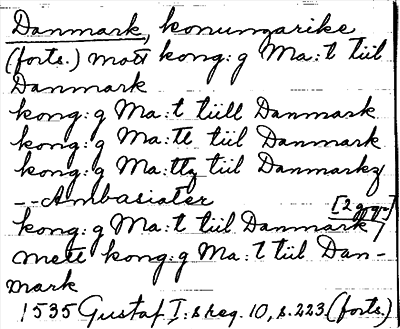 Danmark, konungarike
(forts.) mott kong: g Ma: t tiil
Danmark
kong: g Ma: t tiill Danmark
kong: g Ma: tt tiil Danmark
kong: g Ma: ttz tiil Danmarkz
-- Ambasiater
[2 ggr]
kong: g Ma: t tiil Danmark /
mett kong: g Ma: t tiil Dan-
mark
1535 Gustaf I: s reg. 10, s. 223 (forts.)